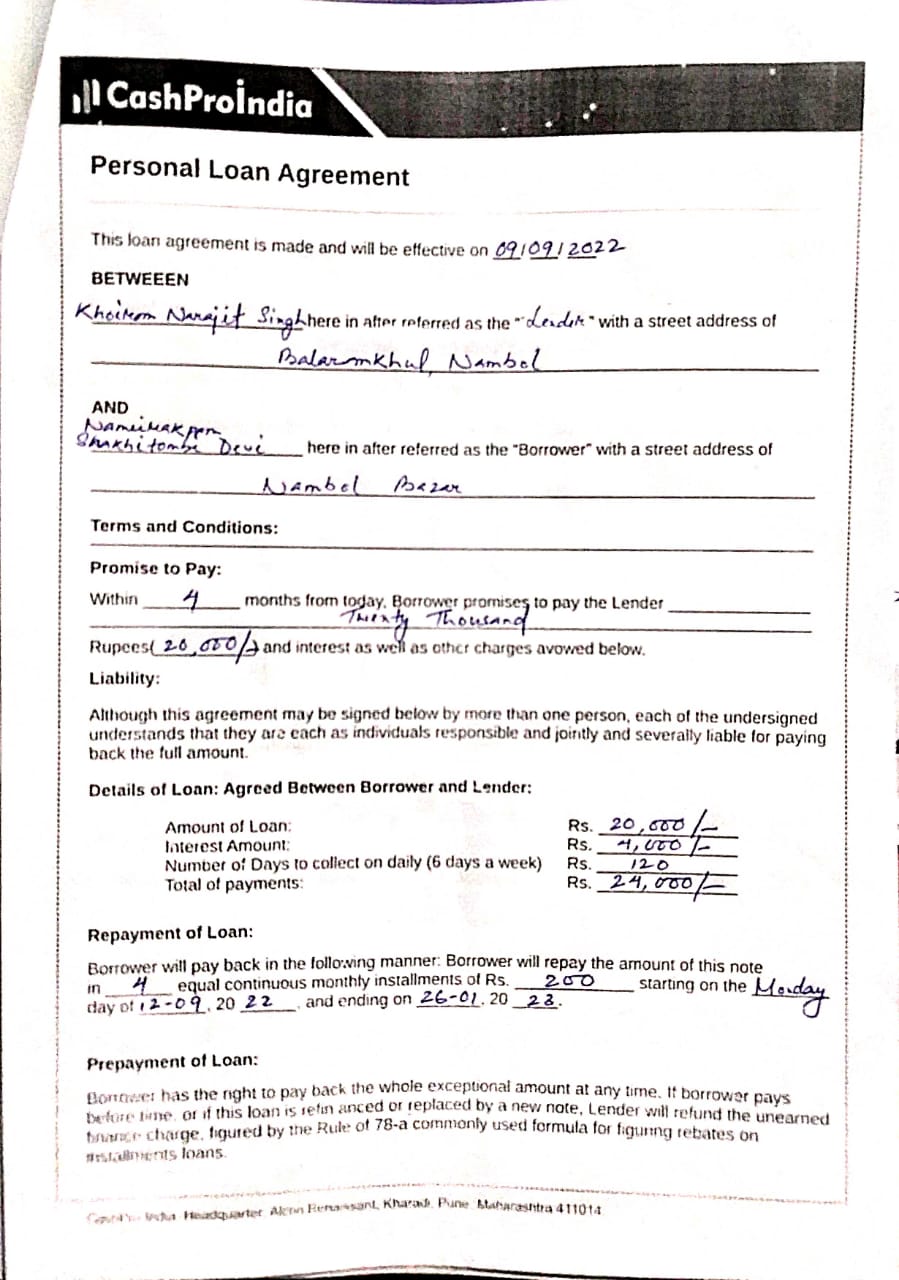 CashProIndia
Personal Loan Agreement
This loan agreement is made and will be effective on 09/09/2022
BETWEEEN
Khoirom Narajit Singh here in after referred as the "Lender" with a street address of
Balaramkhul, Nambol
AND
Shakhitombi Devi here in after referred as the "Borrower" with a street address of
Nambol Bazar
Terms and Conditions:
Promise to Pay:
Within 4 months from today, Borrower promises to pay the Lender
Twenty Thousand
Rupees( 20,000/-) and interest as well as other charges avowed below.
Liability:
Although this agreement may be signed below by more than one person, each of the undersigned
understands that they are each as individuals responsible and jointly and severally liable for paying
back the full amount.
Details of Loan: Agreed Between Borrower and Lender:
Amount of Loan: Rs. 20,000/-
Interest Amount: Rs. 4,000/-
Number of Days to collect on daily (6 days a week) Rs. 120
Total of payments: Rs. 24,000/-
Repayment of Loan:
Borrower will pay back in the following manner: Borrower will repay the amount of this note
in 4 equal continuous monthly installments of Rs. 200 starting on the Monday
day of 12-09, 20 22, and ending on 26-01, 20 23.
Prepayment of Loan:
Borrower has the right to pay back the whole exceptional amount at any time. If borrower pays
before time, or if this loan is refin anced or replaced by a new note, Lender will refund the unearned
finance charge, figured by the Rule of 78-a commonly used formula for figuring rebates on
installments loans.
India Headquarter Kharadi, Pune, Maharashtra 411014